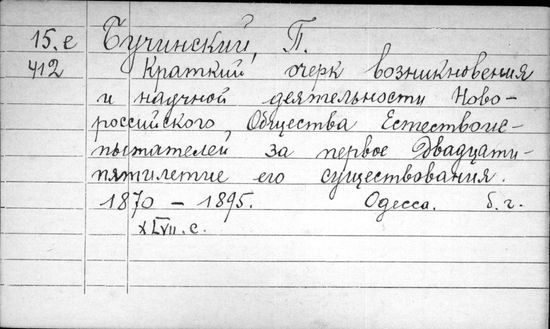 15.е Бучинский, П.
412 Краткий очерк возникновения
и научной деятельности Ново-
российского Общества Естествоис-
пытателей за первое Двадцати-
пятилетие его существования.
1870 – 1895. Одесса. б.г.
XLVII.с.